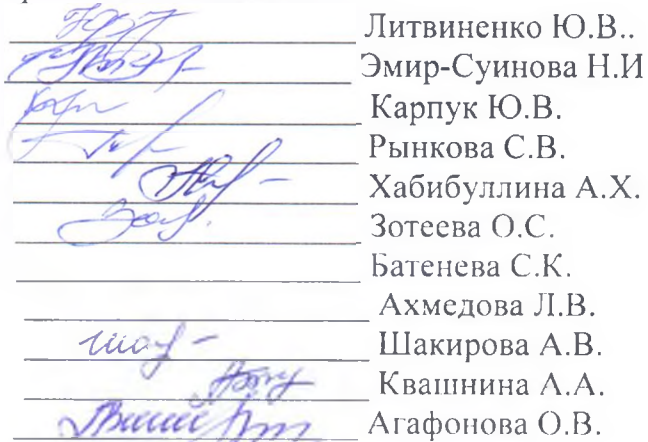 Литвиненко Ю.В..
Эмир-Суинова Н.И
Карпук Ю.В.
Рынкова С.В.
Хабибуллина А.Х.
Зотеева О.С.
Батенева С.К.
Ахмедова Л.В.
Шакирова А.В.
Квашнина А.А.
Агафонова О.В.